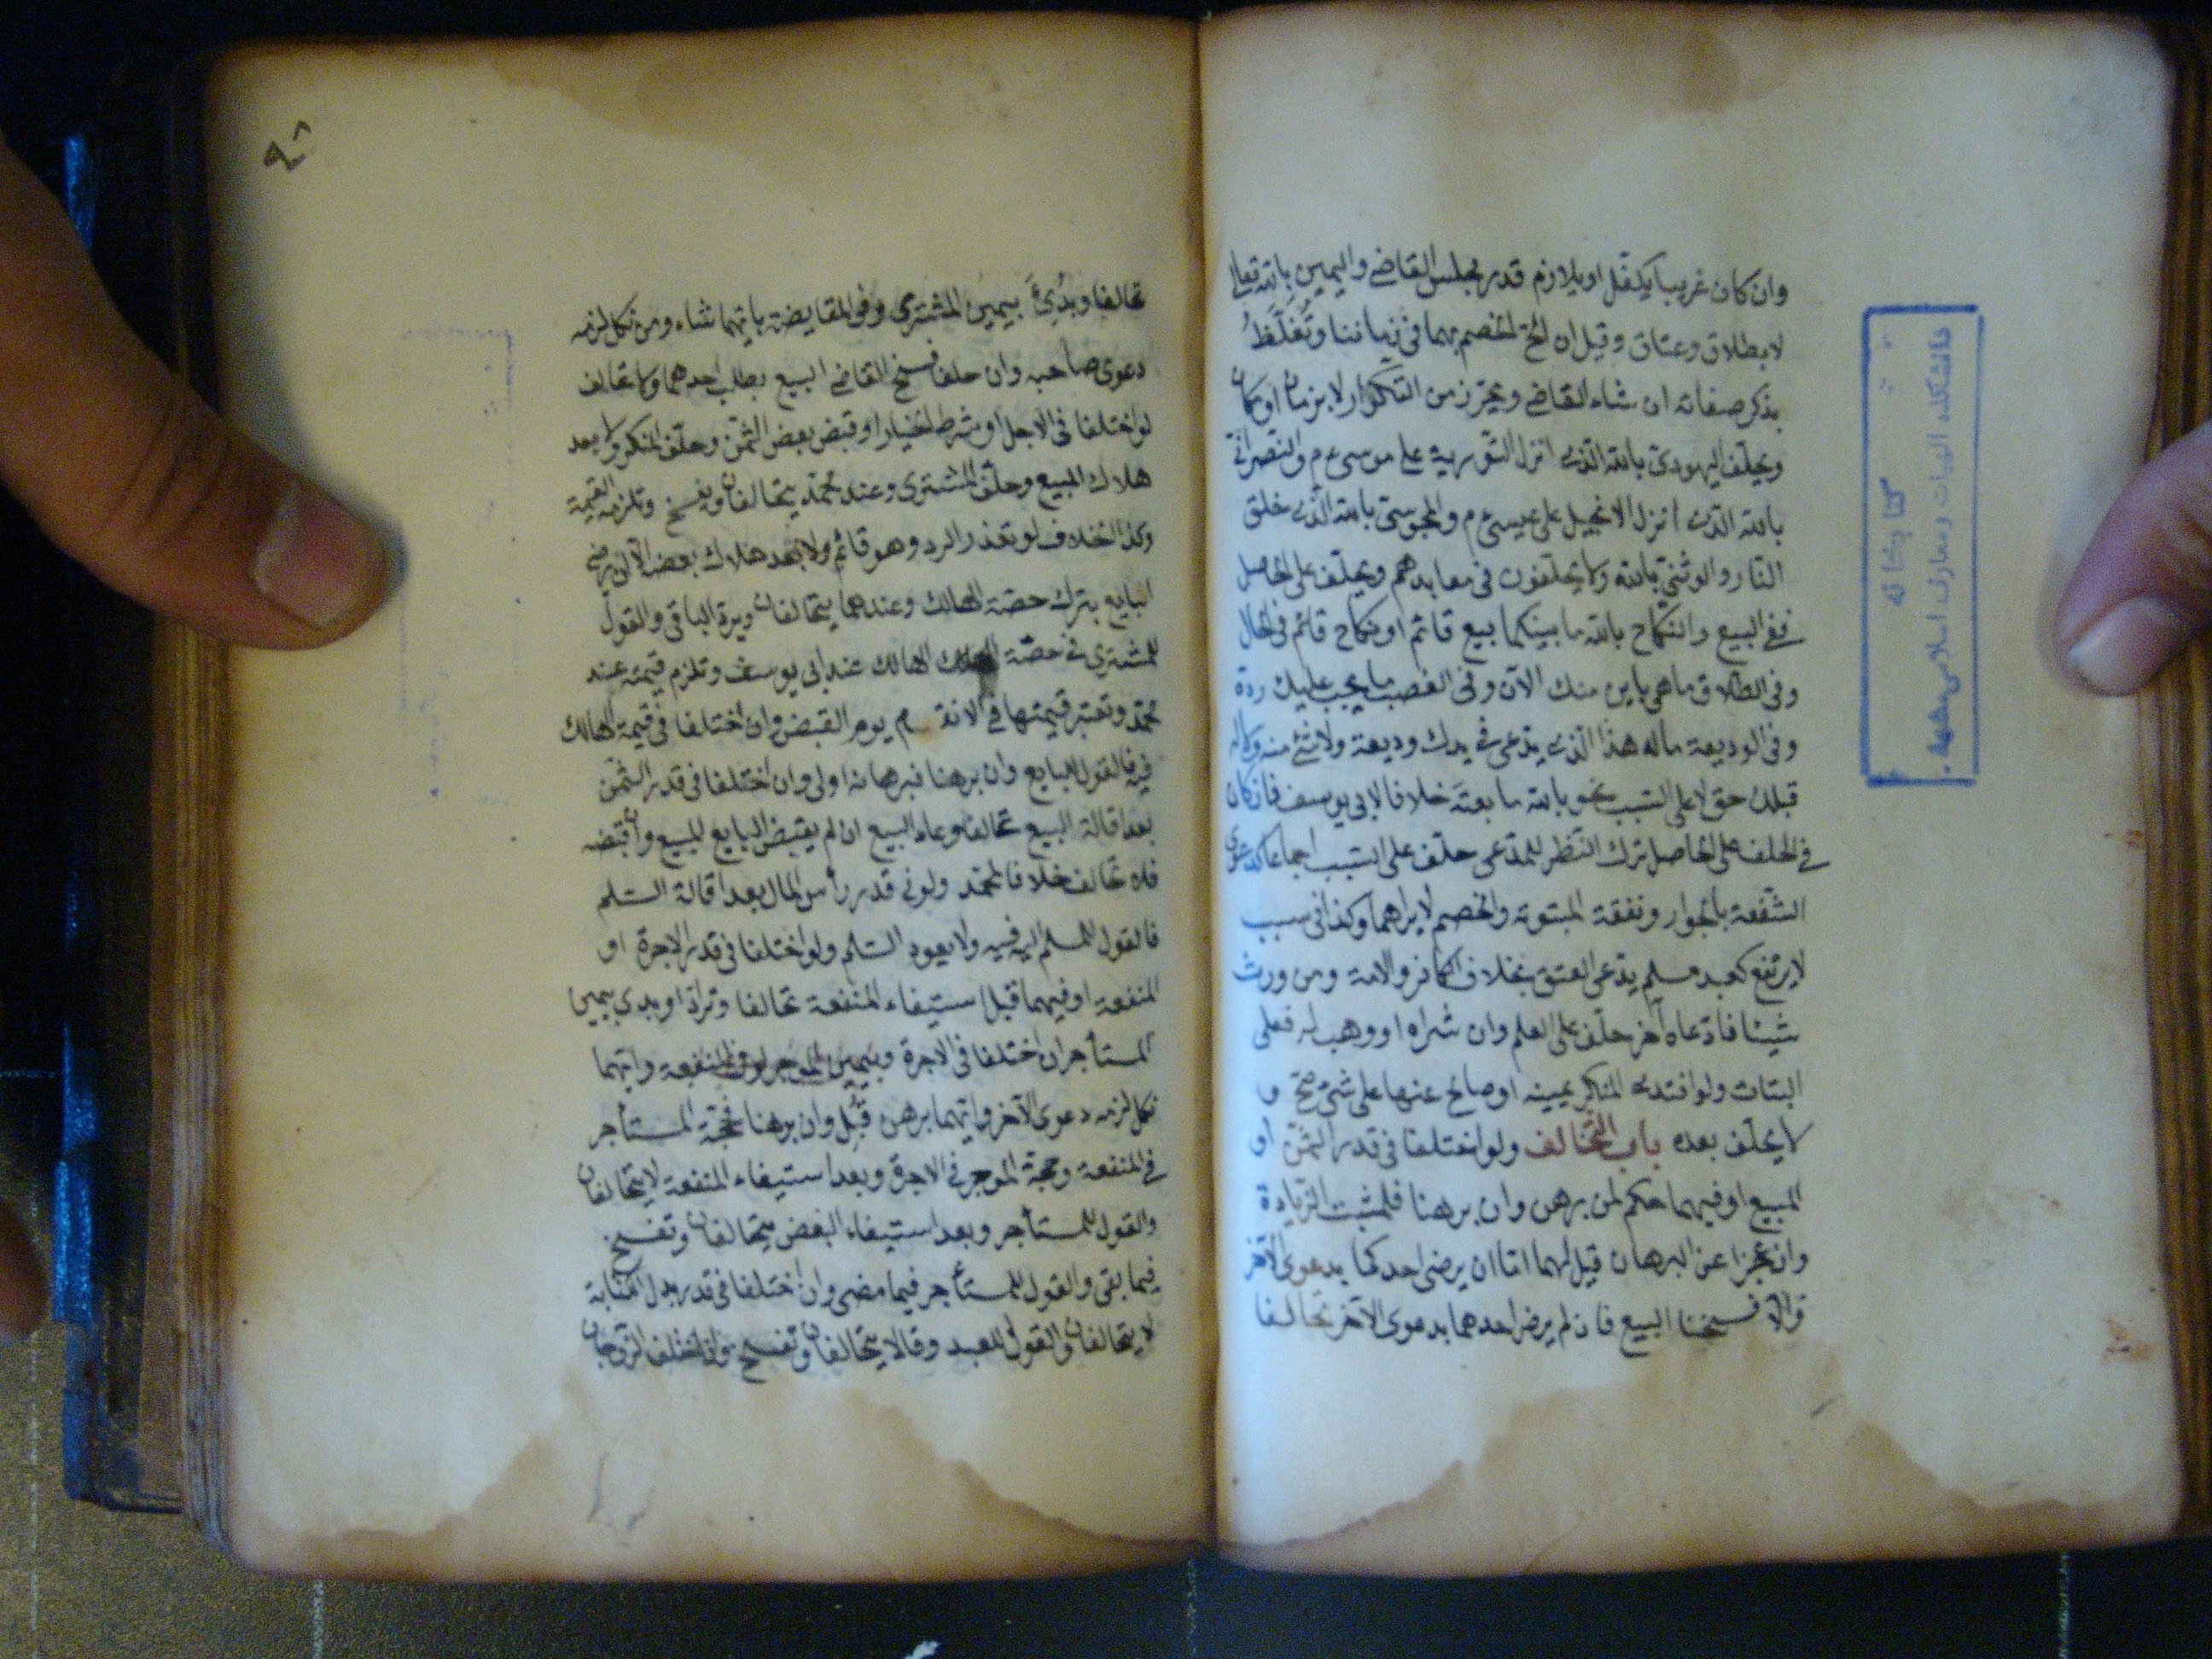 وان كان غريبا يكفل او يلازم قدر مجلس القاضے واليمين بالله تعالى
لا بطلاق وعتاق وقيل ان الح الخصم بهما فى زماننا وتُغلَّظُ
بذكر صفاته ان شاء القاضے ويحترز من التكرار لا بزمان او مكان
ويحلف اليهودىّ بالله الذى انزل التورية على موسى ع م والنصرانى
بالله الذى انزل الانجيل على عيسى ع م والمجوسىّ بالله الذى خلق
النار والوثنىّ بالله ولا يحلفون فى معابدهم ويحلف على الحاصل
ففى البيع والنكاح بالله ما بينكما بيع قائم او نكاح قائم فى الحال
وفى الطلاق ما هى باين منك الآن وفى الغصب ما يجب عليك ردّه
وفى الوديعة ماله هذا الذى يدّعى فى يدك وديعة ولا شئ منه ولا له
قبلك حق لا على السبب نحو بالله ما بعته خلافا لابى يوسف فان كان
فى الحلف على الحاصل ترك النظر للمدّعى حلف على السبب اجماعا كدعوى
الشفعة بالجوار ونفقة المبتوتة والخصم لا يراهما وكذا فى سبب
لا يرتفع كعبد مسلم يدّعى العتق بخلاف الكافر والامة ومن ورث
شيئا فادّعاه آخر حلّف على العلم وان شراه او وهب له فعلى
البتات ولو افتدى المنكر يمينه او صالح عنها على شئ صحّ و
لا يحلّف بعده باب التحالف ولو اختلفا فى قدر الثمن او
المبيع او فيهما حكم لمن برهن وان برهنا فلمثبت الزيادة
وان عجزا عن البرهان قيل لهما امّا ان يرضى احدكما بدعوى الآخر
والا فسخنا البيع فان لم يرض احدهما بدعوى الآخر تحالفا
٩٨
تحالفا وبُدئ بيمين المشترى وفى المقايضة بايّهما شاء ومن نكل لزمه
دعوى صاحبه وان حلفا فسخ القاضے البيع بطلب احدهما ولا تحالف
لو اختلفا فى الاجل او شرط الخيار او قبض بعض الثمن وحلّف المنكر ولا بعد
هلاك المبيع وحلّف المشترى وعند محمّد يتحالفان ويفسخ وتلزمه القيمة
وكذا الخلاف لو تعذر الرد وهو قائم ولا بعد هلاك بعضه الا ان يرضى
البايع بترك حصّة الهالك وعندهما يتحالفان ويردّ الباقى والقول
للمشترى فى حصّة الهالك عند ابى يوسف وتلزم قيمته عند
محمّد وتعتبر قيمتها فى الانقسام يوم القبض وان اختلفا فى قيمة الهالك
فيه فالقول للبايع وان برهنا فبرهانه اولى وان اختلفا فى قدر الثمن
بعد اقالة البيع تحالفا وعاد البيع ان لم يقبض البايع المبيع وان قبضه
فلا تحالف خلافا لمحمّد ولو فى قدر رأس المال بعد اقالة السّلم
فالقول للمسلم اليه فيه ولا يعود السّلم ولو اختلفا فى قدر الاجرة او
المنفعة او فيهما قبل استيفاء المنفعة تحالفا وترادّا وبدئ بيمين
المستأجر ان اختلفا فى الاجرة وبيمين الموجر لو فى المنفعة وايّهما
نكل لزمه دعوى الآخر وايّهما برهن قُبِل وان برهنا فحجّة المستأجر
فى المنفعة وحجّة الموجر فى الاجرة وبعد استيفاء المنفعة لا يتحالفان
والقول للمستأجر وبعد استيفاء البعض يتحالفان وتفسخ
فيما بقى والقول للمستأجر فيما مضى وان اختلفا فى قدر بدل الكتابة
لا يتحالفان والقول للعبد وقالا يتحالفان وتفسخ وان اختلف الزوجان
كتابخانه
دانشكده الهيات ومعارف اسلامى مشهد